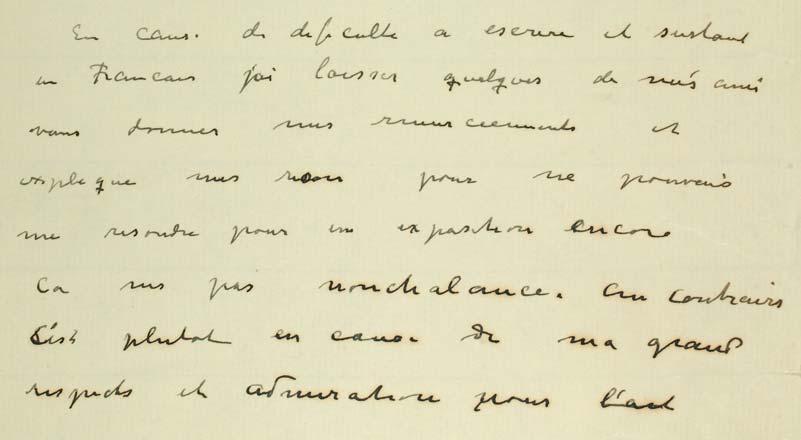 En caus. de deficulte a escrire et surtout
en Francais j'ai laisser quelques de mes amis
vous donner mes remerciements et
expleque mes reson pour ne pouvais
me resoudre pour un exposition encore
Ca nes pas nonchalance. au contrairs
C'est plutot en cause de ma grand
respects et admiration pour l'art